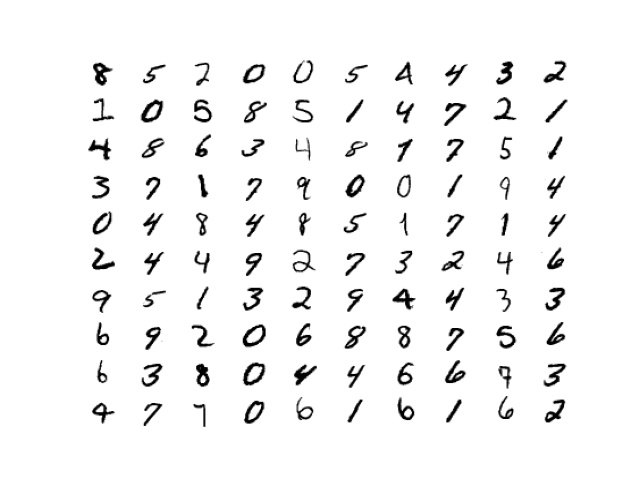 8 5 2 0 0 5 4 4 3 2
1 0 5 8 5 1 4 7 2 1
4 8 6 3 4 8 1 7 5 1
3 7 1 7 9 0 0 1 9 4
0 4 8 4 8 5 1 7 1 4
2 4 4 9 2 7 3 2 4 6
9 5 1 3 2 9 4 4 3 3
6 9 2 0 6 8 8 7 5 6
6 3 8 0 4 4 6 6 7 3
4 7 7 0 6 1 6 1 6 2